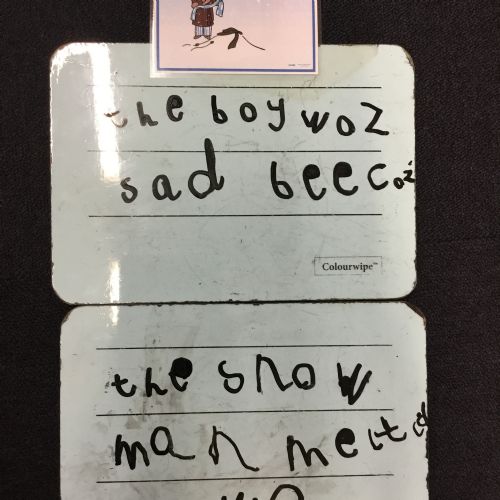 the boy woz
sad beecoz
Colourwipe™
the snow
man meltid